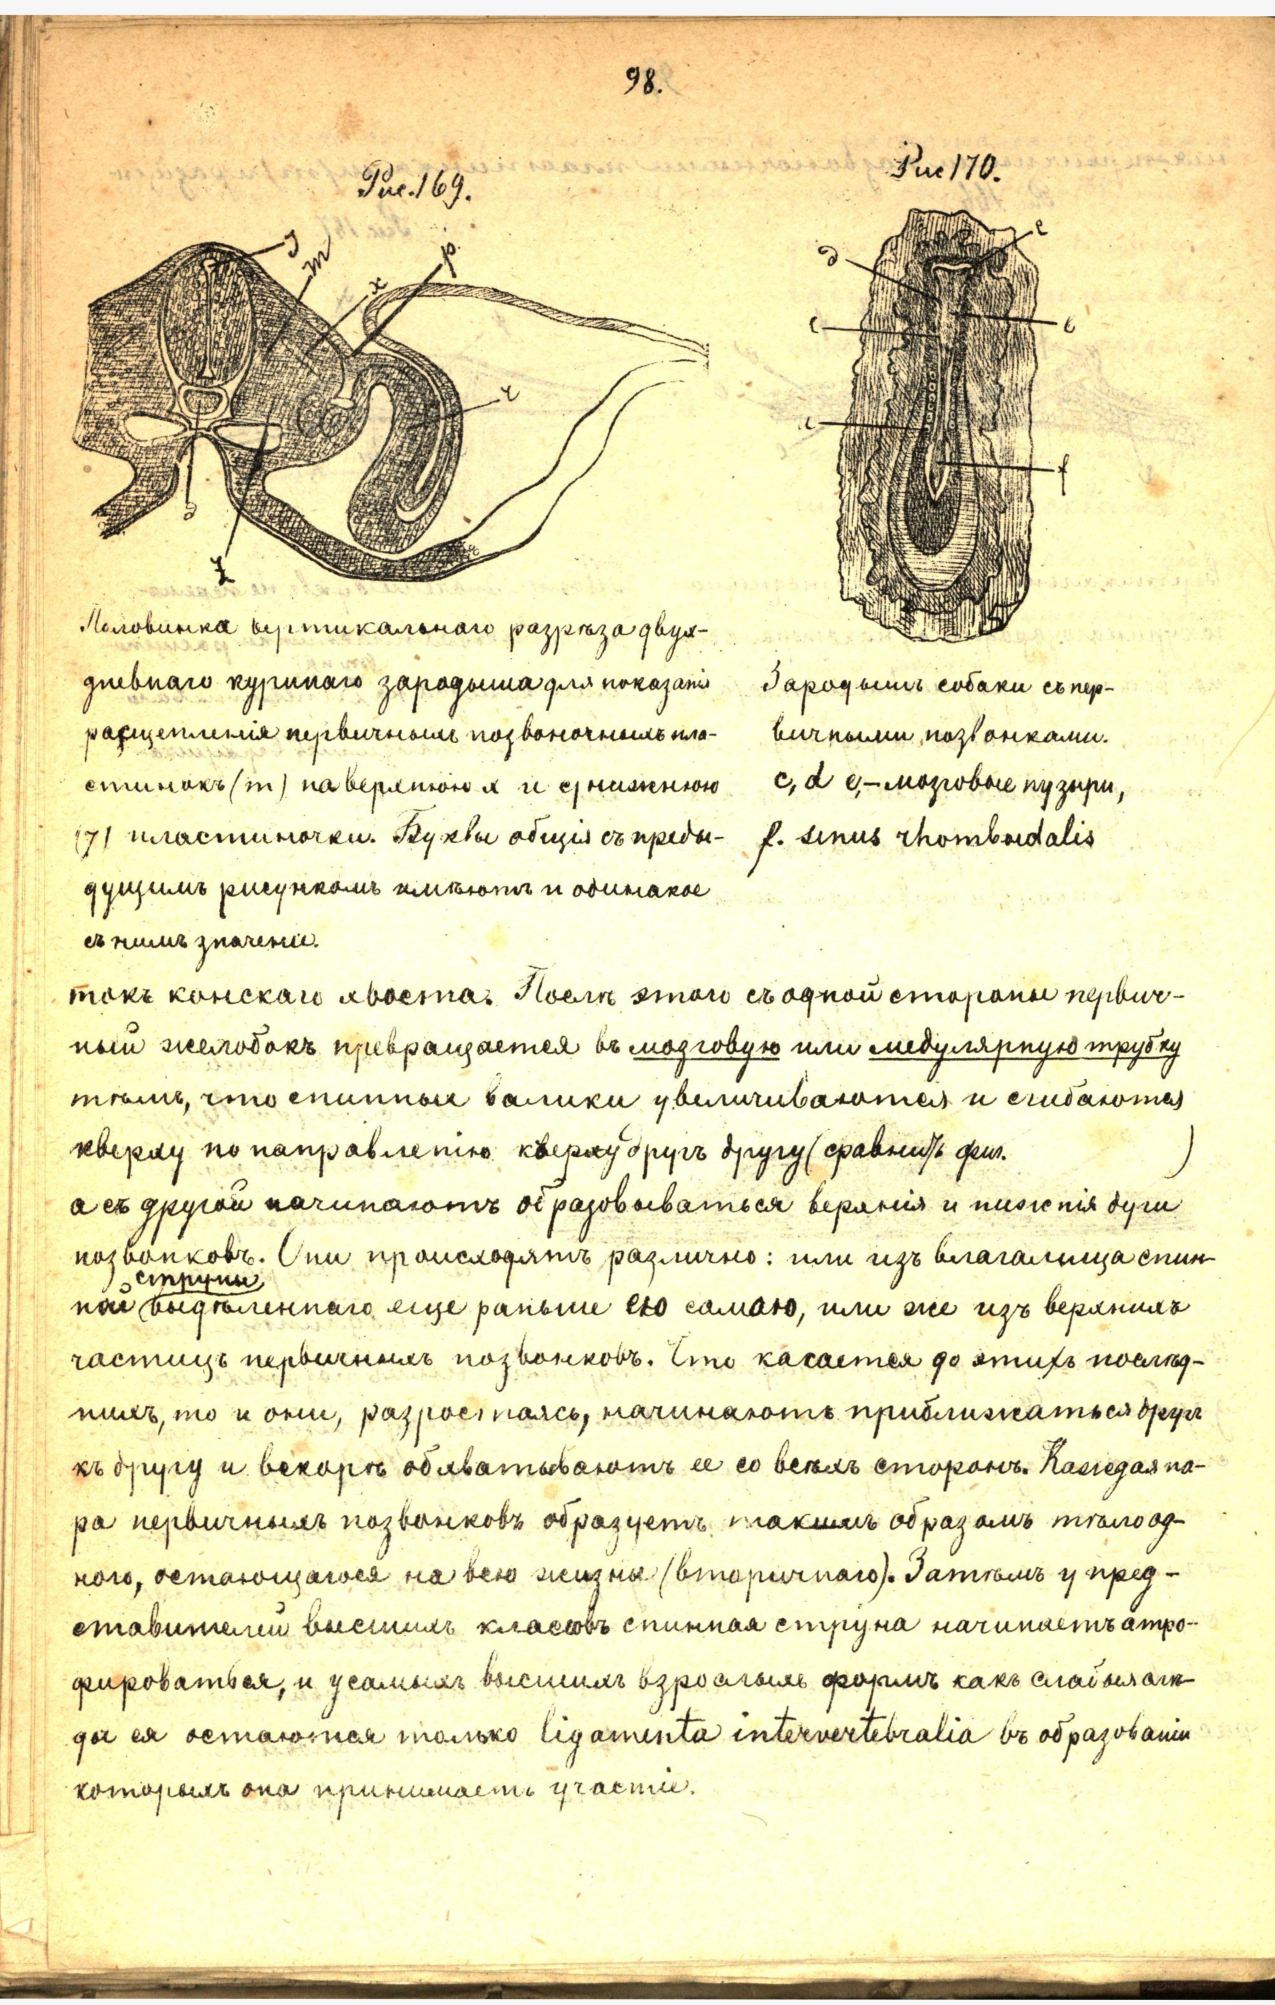 98.
Рис. 169.
Рис 170.
Половинка вертикальнаго разрѣза двух-
дневнаго куринаго зародыша для показанія
расщепленія первичныхъ позвоночныхъ пла-
стинокъ (m) на верхнюю x и нижнюю
(7) пластиночки. Буквы общія съ преды-
дущимъ рисункомъ имѣютъ и одинакое
съ нимъ значеніе.
Зародышъ собаки съ пер-
вичными позвонками.
c, d e,–мозговые пузыри,
f. sinus rhomboidalis
токъ конскаго хвоста. Послѣ этого съ одной стороны первич-
ный желобокъ превращается въ мозговую или медулярную трубку
тѣмъ, что спинные валики увеличиваются и сгибаются
кверху по направленію кверху другъ другу (сравнить фиг. )
а съ другой начинаютъ образовываться верхнія и нижнія дуги
позвонковъ. Они происходятъ различно: или изъ влагалища спин-
струны
ной выдѣленнаго еще раньше ею самою, или же изъ верхнихъ
частицъ первичныхъ позвонковъ. Что касается до этихъ послѣд-
нихъ, то и они, разростаясь, начинаютъ приближаться другъ
къ другу и вскорѣ обхватываютъ ее со всѣхъ сторонъ. Каждая па-
ра первичныхъ позвонковъ образуетъ такимъ образомъ тѣло од-
ного, остающагося на всю жизнь (вторичнаго). Затѣмъ у пред-
ставителей высшихъ классовъ спинная струна начинаетъ атро-
фироваться, и у самыхъ высшихъ взрослыхъ формъ какъ слабые слѣ-
ды ея остаются только ligamenta intervertebralia въ образованіи
которыхъ она принимаетъ участіе.